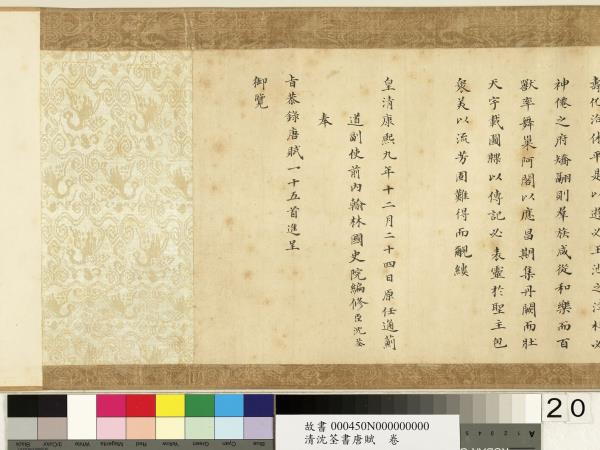 壽化洽休平是以遊必玉池之
神僊之府矯翮則羣族咸從和樂而百
獸率舞巢阿閣以應昌期集丹闕而壯
天宇載圖牒以傳記必表靈於聖主包
衆美以流芳固難得而覼縷
皇清康熙九年十二月二十四日原任通薊
道副使前內翰林國史院編修臣沈荃
奉
旨恭錄唐賦一十五首進呈
御覽
故書 000450N000000000
清沈荃書唐賦 卷
20
Blue
Cyan
Green
Yellow
Red
Magenta
White
3/Color
Black
A
5
4